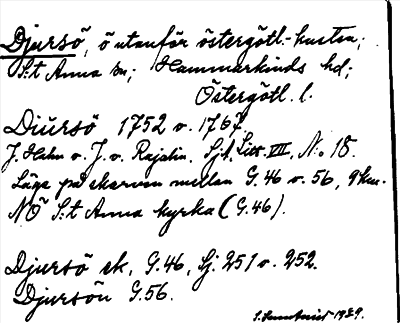 Djursö, ö utanför östergötl.-kusten;
S:t Anna sn; Hammarkinds hd;
Östergötl. l.
Diürsö 1752 o. 1767.
J. Hahn o. J. v. Rajalin. Sjk. Litt. VII, No 18.
Läge på skarven mellan G. 46 o. 56, 9 km.
NÖ S:t Anna kyrka (G. 46).
Djursö sk, G. 46, Sj. 251 o. 252.
Djursön G. 56.
1929.